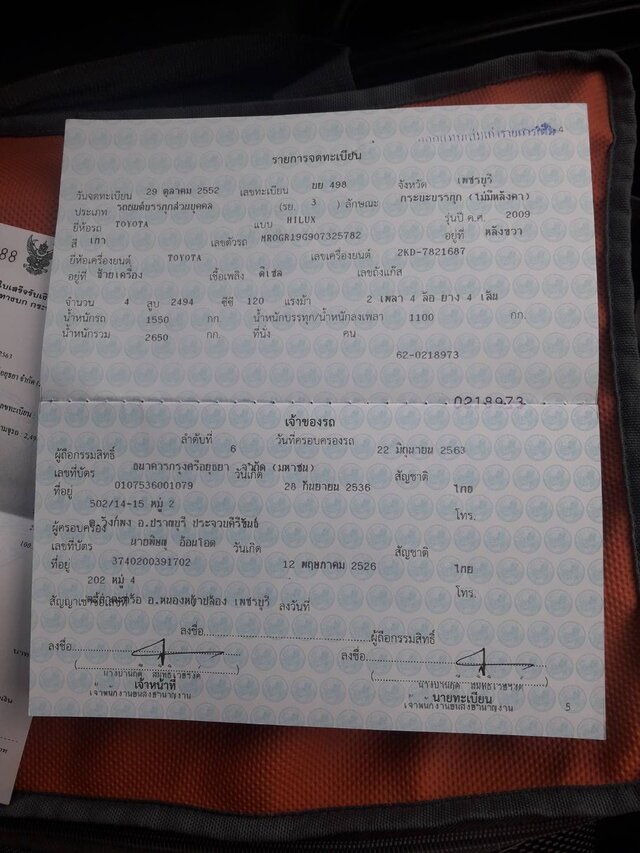 ออกแทนเล่มเก่ารายการเต็ม 4
รายการจดทะเบียน
วันจดทะเบียน 29 ตุลาคม 2552 เลขทะเบียน บย 498 จังหวัด เพชรบุรี
ประเภท รถยนต์บรรทุกส่วนบุคคล (รย. 3 ) ลักษณะ กระบะบรรทุก (ไม่มีหลังคา)
ยี่ห้อรถ TOYOTA แบบ HILUX รุ่นปี ค.ศ. 2009
สี เทา เลขตัวรถ MROGR19G907325782 อยู่ที่ หลังขวา
ยี่ห้อเครื่องยนต์ TOYOTA เลขเครื่องยนต์ 2KD-7821687
อยู่ที่ ซ้ายเครื่อง เชื้อเพลิง ดีเซล เลขถังแก๊ส
จำนวน 4 สูบ 2494 ซีซี 120 แรงม้า 2 เพลา 4 ล้อ ยาง 4 เส้น
น้ำหนักรถ 1550 กก. น้ำหนักบรรทุก/น้ำหนักลงเพลา 1100 กก.
น้ำหนักรวม 2650 กก. ที่นั่ง คน
62-0218973
0218973
เจ้าของรถ
ลำดับที่ 6 วันที่ครอบครองรถ 22 มิถุนายน 2563
ผู้ถือกรรมสิทธิ์ ธนาคารกรุงศรีอยุธยา จำกัด (มหาชน)
เลขที่บัตร 0107536001079 วันเกิด 28 กันยายน 2536 สัญชาติ ไทย
ที่อยู่ 502/14-15 หมู่ 2
ต.วังก์พง อ.ปราณบุรี ประจวบคีรีขันธ์ โทร.
ผู้ครอบครอง นายพิษณุ อ้อนโอด
เลขที่บัตร 3740200391702 วันเกิด 12 พฤษภาคม 2526 สัญชาติ ไทย
ที่อยู่ 202 หมู่ 4
อ.หนองหญ้าปล้อง เพชรบุรี โทร.
สัญญาเช่าซื้อเลขที่ ลงวันที่
ลงชื่อ ผู้ถือกรรมสิทธิ์
ลงชื่อ ลงชื่อ
เจ้าหน้าที่ นายทะเบียน
เจ้าพนักงานขนส่งชำนาญงาน เจ้าพนักงานขนส่งชำนาญงาน
5
88
2563